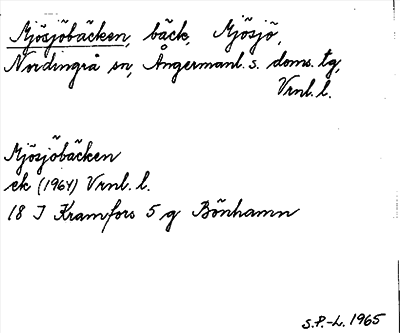 Mjösjöbäcken, bäck, Mjösjö,
Nordingrå sn, Ångermanl. s. doms. tg,
Vrnl. l.
Mjösjöbäcken
ek (1964) Vrnl. l.
18 I Kramfors 5 g Bönhamn
S.P.-L. 1965